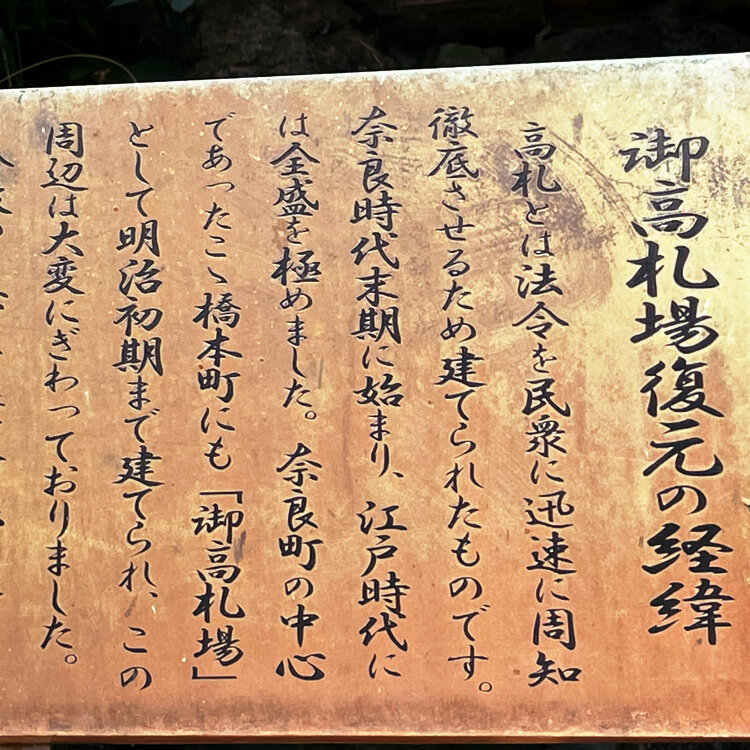 御高札場復元の経緯
高札とは法令を民衆に迅速に周知
徹底させるため建てられたものです。
奈良時代末期に始まり、江戸時代に
は全盛を極めました。奈良町の中心
であったこゝ橋本町にも「御高札場」
として明治初期まで建てられ、この
周辺は大変にぎわっておりました。